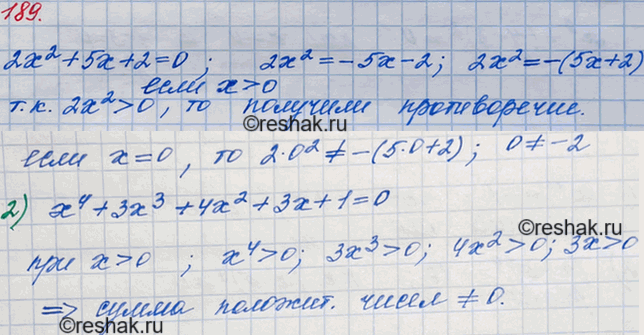 189.
2x² + 5x + 2 = 0 ; 2x² = -5x - 2 ; 2x² = -(5x + 2)
если x > 0
т.к. 2x² > 0 , то получили противоречие.
©reshak.ru
если x = 0 , то 2·0² ≠ -(5·0 + 2) ; 0 ≠ -2
©reshak.ru
2) x⁴ + 3x³ + 4x² + 3x + 1 = 0
при x > 0 ; x⁴ > 0 ; 3x³ > 0 ; 4x² > 0 ; 3x > 0
⇒ сумма положит. чисел ≠ 0.
©reshak.ru
©reshak.ru